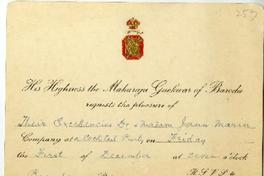 257
His Highness the Maharaja Gaekwar of Baroda
requests the pleasure of
Their Excellencies Dr. & Madam Juan Marin
Company at a Cocktail Party on Friday
the First of December at seven o'clock
R.S.V.P.